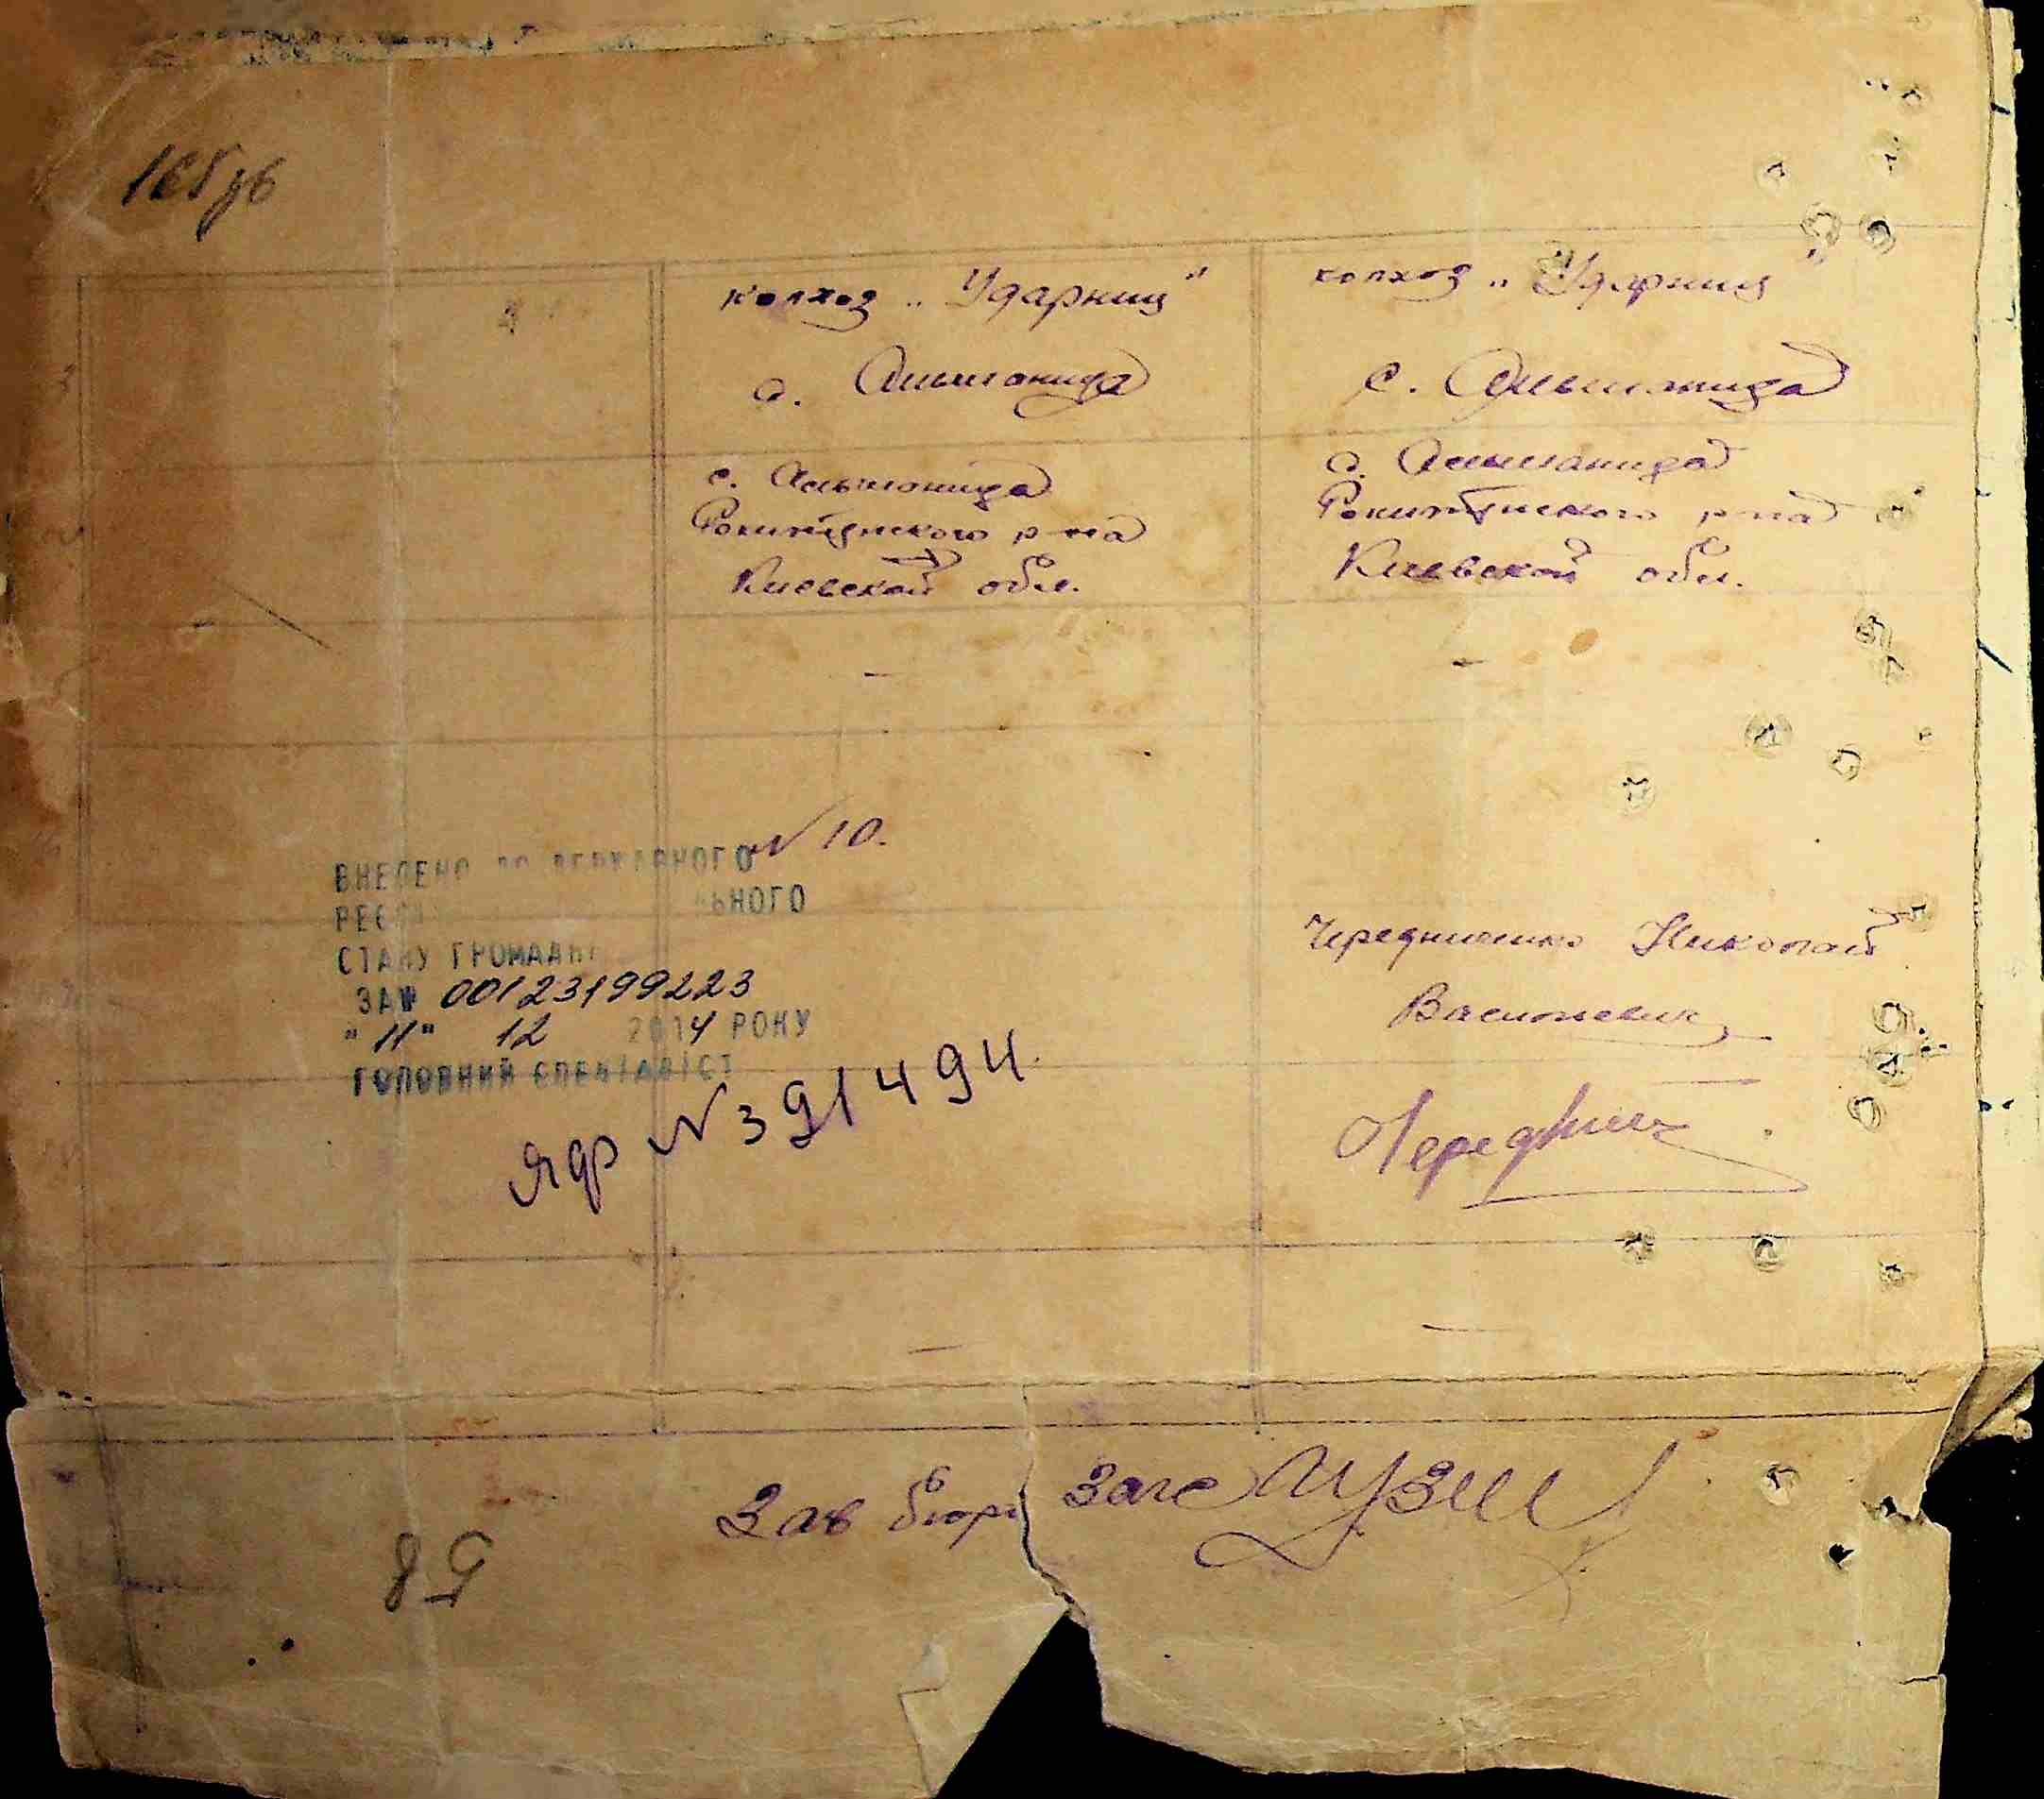 колхоз „Ударник"
колхоз „Ударник"
с. Ольшаница
с. Ольшаница
с. Ольшаница
Рокитнянского р-на
Киевской обл.
с. Ольшаница
Рокитнянского р-на
Киевской обл.
N 10.
ВНЕСЕНО ДО ДЕРЖАВНОГО
ЬНОГО
СТАНУ ГРОМАДЯ
ЗА № 00123199223
"11" 12 2014 РОКУ
ГОЛОВНИЙ СПЕЦІАЛІСТ
Чередниченко Николай
Васильевич
N 391494
Зав бюро загс